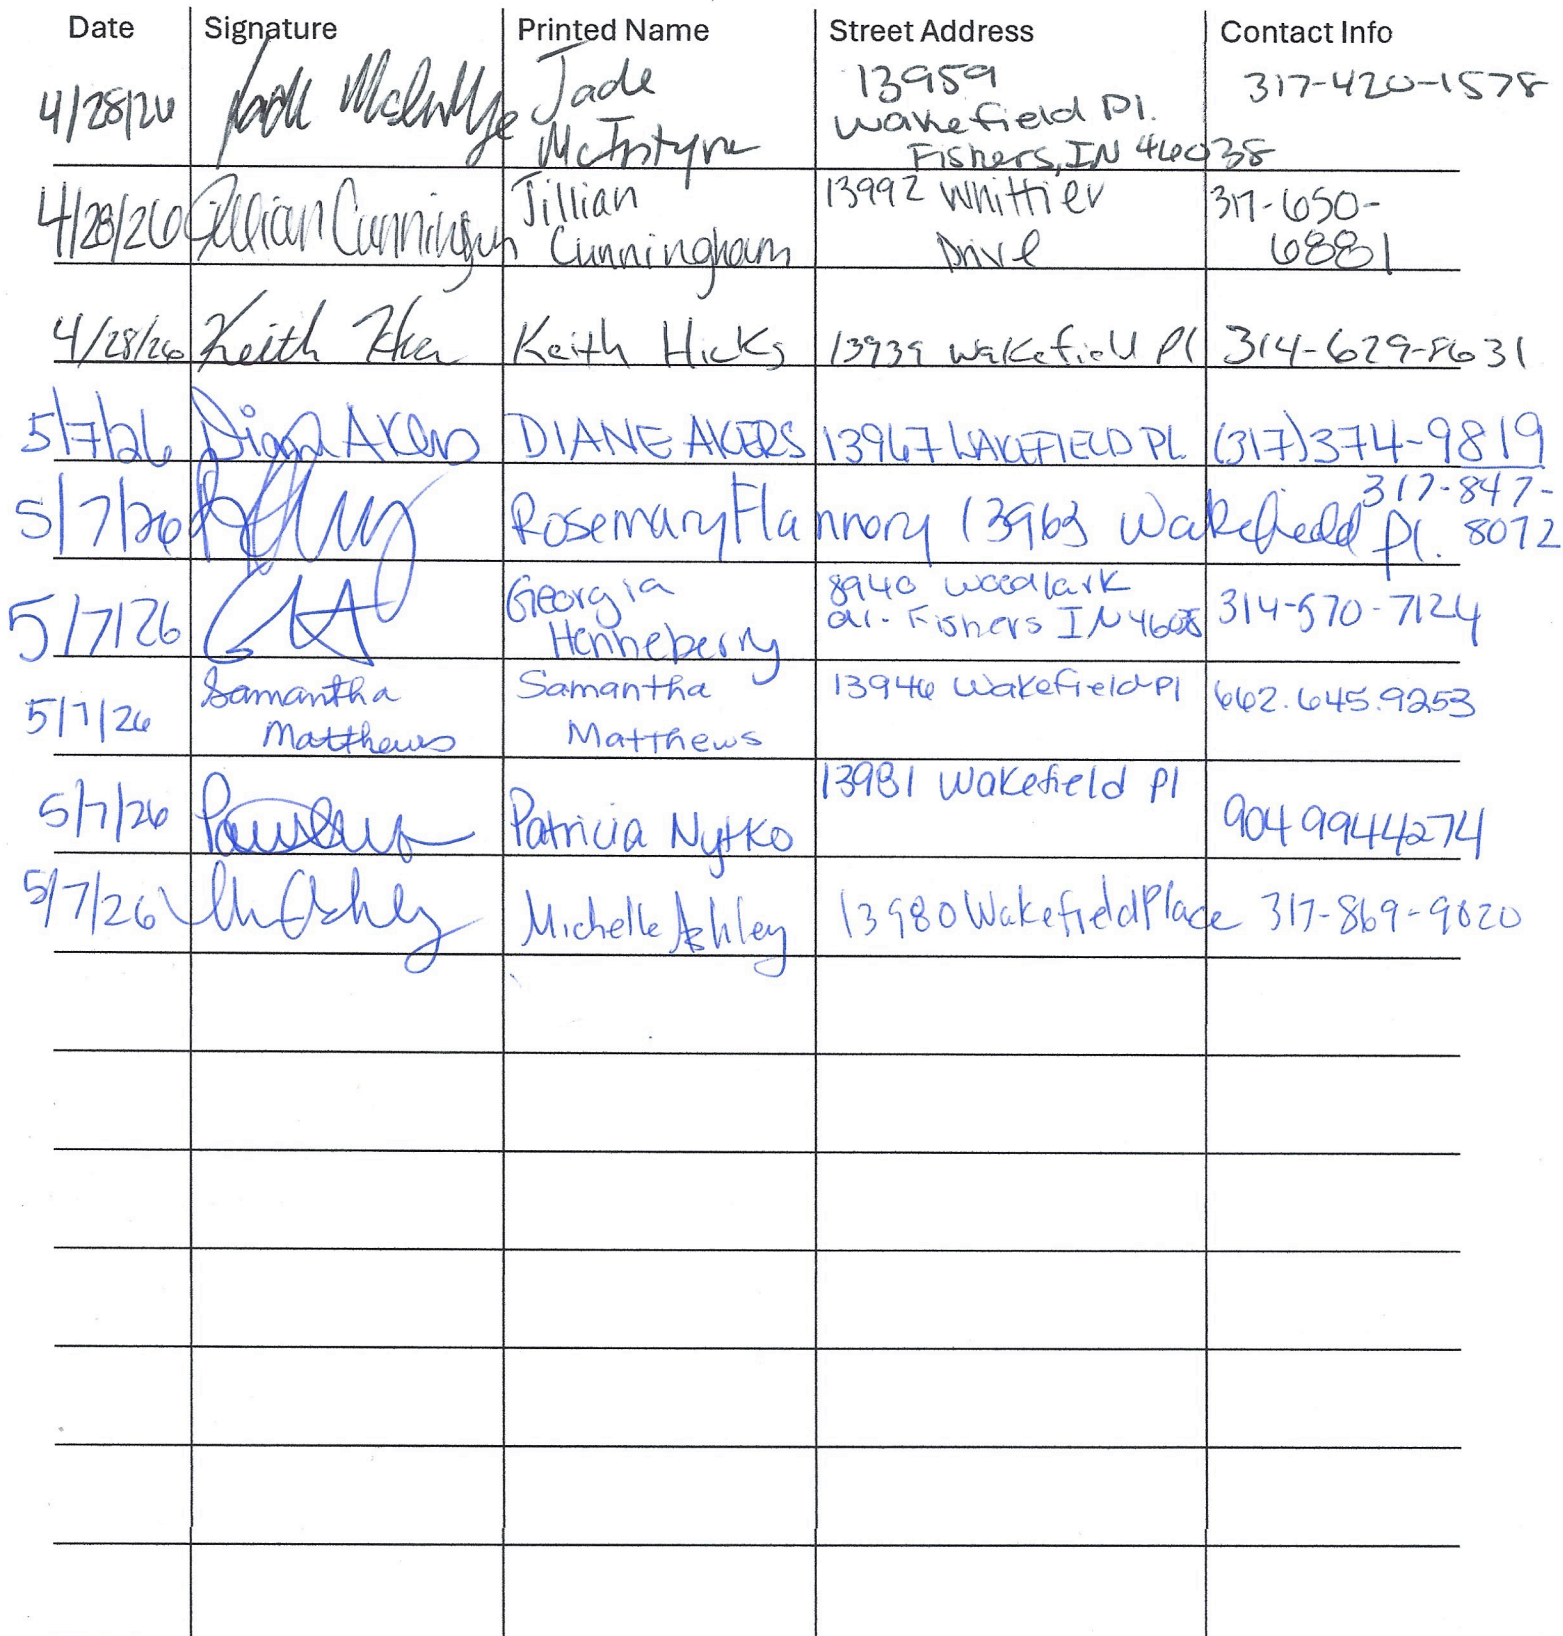 Date Signature Printed Name Street Address Contact Info
4/28/26 Jade McIntyre Jade McIntyre 13959 Wakefield Pl. Fishers, IN 46038 317-420-1578
4/28/26 Jillian Cunningham Jillian Cunningham 13992 Whittier Drive 317-650-6881
4/28/26 Keith Hicks Keith Hicks 13939 Wakefield Pl 314-629-8631
5/7/26 Diane Akers DIANE AKERS 13967 WAKEFIELD PL (317)374-9819
5/7/26 Rosemary Flannery 13963 Wakefield Pl. 317-847-8072
5/7/26 Georgia Henneberry 8940 Woodlark Fishers IN 314-570-7124
5/7/26 Samantha Matthews Samantha Matthews 13946 Wakefield Pl 662.645.9253
5/7/26 Patricia Nytko 13981 Wakefield Pl 904 9944274
5/7/26 Michelle Ashley 13980 Wakefield Place 317-869-9020